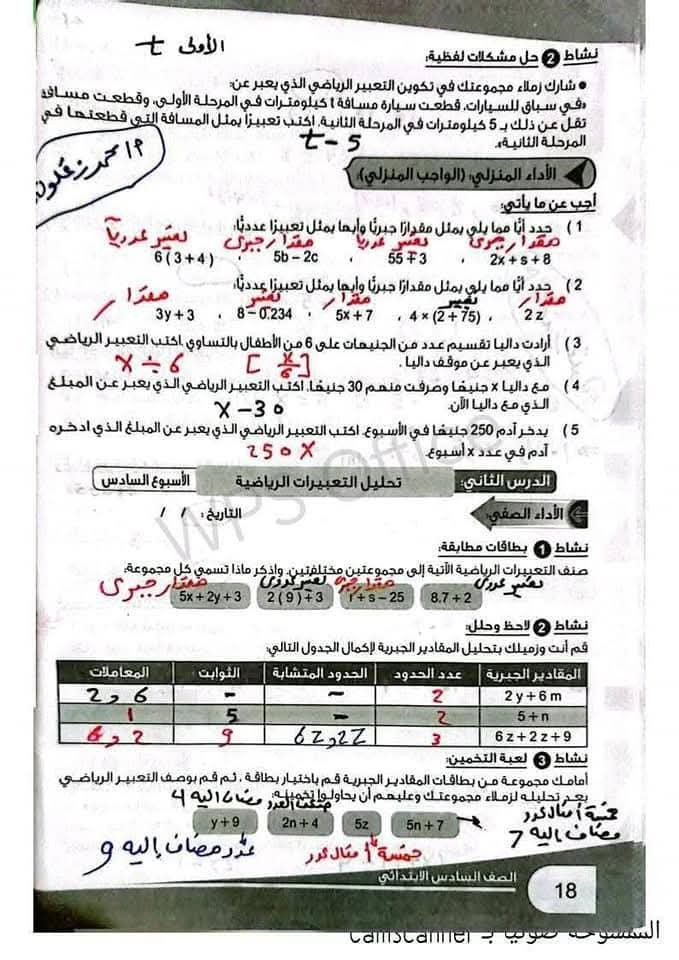 الأولى t
نشاط 2 حل مشكلات لفظية:
● شارك زملاء مجموعتك في تكوين التعبير الرياضي الذي يعبر عن:
«في سباق للسيارات، قطعت سيارة مسافة t كيلومترات في المرحلة الأولى، وقطعت مسافة
تقل عن ذلك بـ 5 كيلومترات في المرحلة الثانية. اكتب تعبيرًا يمثل المسافة التي قطعتها في
المرحلة الثانية».
t - 5
محمد زغلول
الأداء المنزلي: (الواجب المنزلي):
أجب عن ما يأتي:
1 ) حدد أيًا مما يلي يمثل مقدارًا جبريًا وأيها يمثل تعبيرًا عدديًا:
مقدار جبرى تعبير عدديا مقدار جبرى تعبير عدديا
2x + s + 8 ، 55 ÷ 3 ، 5b – 2c ، 6 ( 3 + 4 )
2 ) حدد أيًا مما يلي يمثل مقدارًا جبريًا وأيها يمثل تعبيرًا عدديًا:
مقدار تعبير مقدار تعبير مقدار
2 z ، 4 × (2 + 75) ، 5x + 7 ، 8 – 0.234 ، 3y + 3
3 ) أرادت داليا تقسيم عدد من الجنيهات على 6 من الأطفال بالتساوي. اكتب التعبير الرياضي
الذي يعبر عن موقف داليا .
[x/6] x ÷ 6
4 ) مع داليا x جنيهًا وصرفت منهم 30 جنيهًا. اكتب التعبير الرياضي الذي يعبر عن المبلغ
الذي مع داليا الآن.
x - 30
5 ) يدخر آدم 250 جنيهًا في الأسبوع. اكتب التعبير الرياضي الذي يعبر عن المبلغ الذي ادخره
آدم في عدد x أسبوع.
250 x
الدرس الثاني: تحليل التعبيرات الرياضية الأسبوع السادس
الأداء الصفي: التاريخ: / /
WPS Office
نشاط 1 بطاقات مطابقة:
صنف التعبيرات الرياضية الآتية إلى مجموعتين مختلفتين. واذكر ماذا تسمي كل مجموعة:
تعبير عددى مقدار جبرى تعبير عددى مقدار جبرى
8.7 ÷ 2 r + s – 25 2 ( 9 ) ÷ 3 5x + 2y + 3
نشاط 2 لاحظ وحلل:
قم أنت وزميلك بتحليل المقادير الجبرية لإكمال الجدول التالي:
المقادير الجبرية عدد الحدود الحدود المتشابة الثوابت المعاملات
2 y + 6 m 2 - - 2 و 6
5 + n 2 - 5 1
6 z + 2 z + 9 3 6z و 2z 9 6 و 2
نشاط 3 لعبة التخمين:
أمامك مجموعة من بطاقات المقادير الجبرية قم باختيار بطاقة ، ثم قم بوصف التعبير الرياضي
بعد تحليله لزملاء مجموعتك وعليهم أن يحاولوا تخمينه:
ضعف العدد مضاف اليه 4
5n + 7 5z 2n + 4 y + 9
خمسة أمثال عدد
مضاف إليه 7
خمسة أمثال عدد
عدد مضاف إليه 9
الصف السادس الابتدائي
18
الممسوحة ضوئيا بـ CamScanner